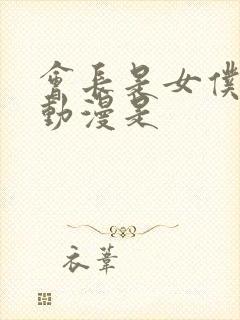 會長是女僕
動漫是
衣葦